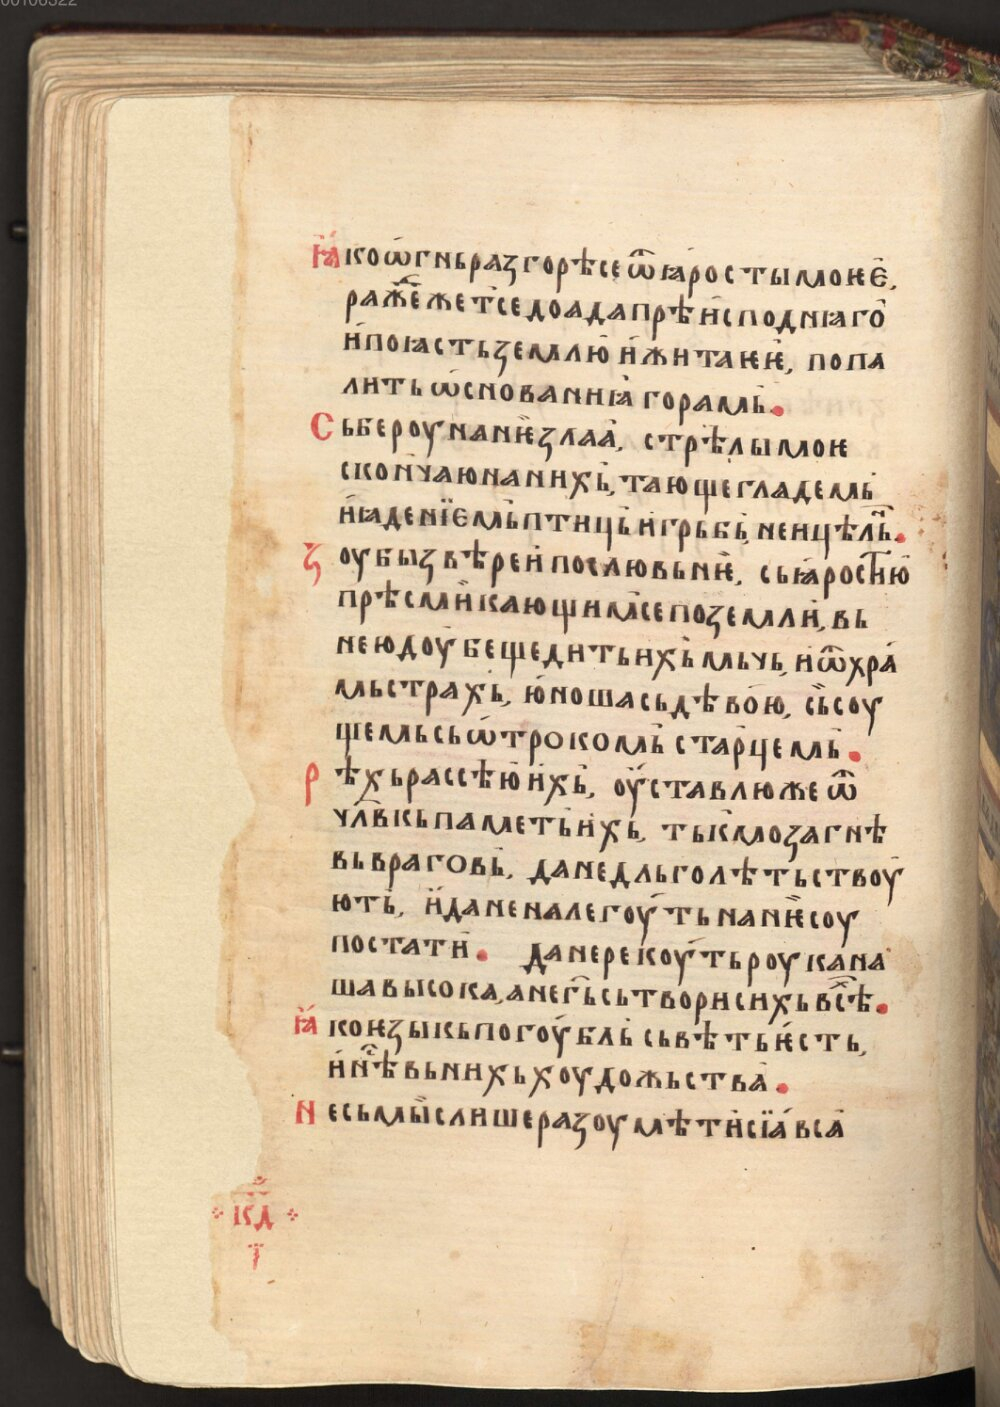 00106322
Ꙗко ѡ҆гнь разгорѣ се ѿ ꙗрости моѥѥ,
ражⷣеже тсе до ада прѣиспⷪднꙗго
и҆ поꙗсть землю и҆ жита ѥѥ, попа
лить ѡ҆снованиꙗ горамь.
Сьбероу на нѥ злаа, стрѣлы моѥ
скончаю на нихь, тающе гладемь
и҆ ꙗденїемь птиць и грьбь неицѣлⸯнь.
Зоубы звѣреи послю вь нѥ, сь ꙗростїю
прѣсмикающимсе по земли, вь
неюдоу бещедить ихь мьчь, и ѿ хра
мь страхь, юноша сь дѣвою, сьсоу
щемь сь ѡ҆трокомь старцемь.
Рѣхь рассѣю ихь, оуставлю же ѿ
чл҃вкь паметь ихь, тькмо за гнѣ
вь враговь, да не дльголѣтьствоу
ють, и҆ да не налегоуть на нѥ соу
постати. да не рекоуть роука на
ша висока, а не гь҃ сьтвори сихь всⷯѣ.
Ꙗко ѥзыкь погоубль сьвѣть ѥсть,
и҆ нⷭ҇ѣ вь нихь хоудожьства.
Не сьмыслише разоумѣти сїа вса
кд
т